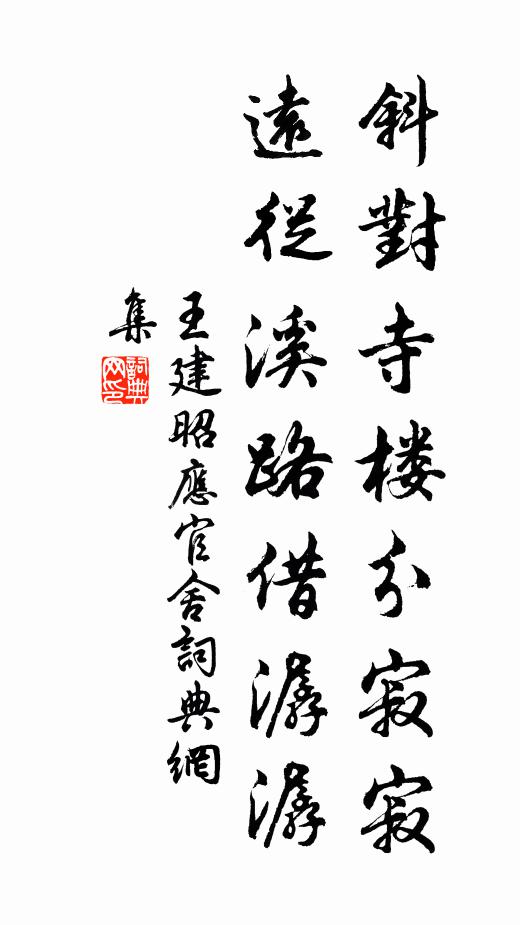 斜對寺楼分寂寂
遠從溪路借潺潺
王建昭應官舍詞典網
集
詞典网印